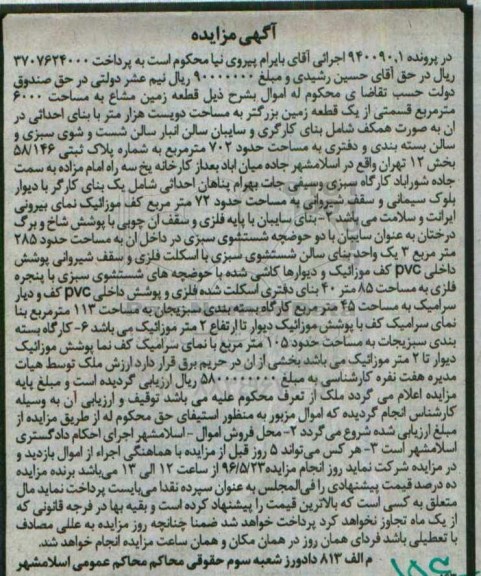 آگهی مزایده
در پرونده 940090,1 اجرائی آقای بایرام پیروی نیا محکوم است به پرداخت 3707624000
ریال در حق آقای حسین رشیدی و مبلغ 90000000 ریال نیم عشر دولتی در حق صندوق
دولت حسب تقاضا ی محکوم له اموال بشرح ذیل قطعه زمین مشاع به مساحت 6000
مترمربع قسمتی از یک قطعه زمین بزرگتر به مساحت دویست هزار متر با بنای احداثی در
ان به صورت همکف شامل بنای کارگری و سایبان سالن انبار سالن شست و شوی سبزی و
سالن بسته بندی و دفتری به مساحت حدود 702 مترمربع به شماره پلاک ثبتی 58/146
بخش 12 تهران واقع در اسلامشهر جاده میان اباد بعداز کارخانه یخ سه راه امام زاده به سمت
جاده شوراباد کارگاه سبزی وسیفی جات بهرام پناهان احداثی شامل یک بنای کارگر با دیوار
بلوک سیمانی و سقف شیروانی به مساحت حدود 72 متر مربع کف موزائیک نمای بیرونی
ایرانت و سلامت می باشد 2- بنای سایبان با پایه فلزی و سقف ان چوبی با پوشش شاخ و برگ
درختان به عنوان سایبان با دو حوضچه شستشوی سبزی در داخل ان به مساحت حدود 285
متر مربع 3 یک واحد بنای سالن شستشوی سبزی با اسکلت فلزی و سقف شیروانی پوشش
داخلی pvc کف موزائیک و دیوارها کاشی شده با حوضچه های شستشوی سبزی با پنجره
فلزی به مساحت 85 متر 40 بنای دفتری اسکلت شده فلزی و پوشش داخلی pvc کف و دیار
سرامیک به مساحت 45 متر مربع کارگاه بسته بندی سبزیجان به مساحت 113 مترمربع بنا
نمای سرامیک کف با پوشش موزائیک دیوار تا ارتفاع 2 متر موزائیک می باشد 6- کارگاه بسته
بندی سبزیجات به مساحت حدود 105 متر مربع با نمای سرامیک کف نما پوشش موزائیک
دیوار تا 2 متر موزائیک می باشد بخشی از ان در حریم برق قرار دارد ارزش ملک توسط هیات
مدیره هفت نفره کارشناسی به مبلغ ریال ارزیابی گردیده است و مبلغ پایه
مزایده اعلام می گردد ملک از تعرف محکوم علیه می باشد توقیف و ارزیابی آن به وسیله
کارشناس انجام گردیده که اموال مزبور به منظور استیفای حق محکوم له از طریق مزایده از
مبلغ ارزیابی شده شروع می گردد 2- محل فروش اموال - اسلامشهر اجرای احکام دادگستری
اسلامشهر است 3- هر کس می تواند 5 روز قبل از مزایده با هماهنگی اجراء از اموال بازدید و
در مزایده شرکت نماید روز انجام مزایده 96/5/23 از ساعت 12 الی 13 می باشد برنده مزایده
ده درصد قیمت پیشنهادی را فی المجلس به عنوان سپرده نقدا می بایست پرداخت نماید مال
متعلق به کسی است که بالاترین قیمت را پیشنهاد کرده است و بقیه بها در فرجه قانونی که
از یک ماه تجاوز نخواهد کرد پرداخت خواهد شد ضمنا چنانچه روز مزایده به عللی مصادف
با تعطیلی باشد فردای همان روز در همان مکان و همان ساعت مزایده انجام خواهد شد.
م الف 813 دادورز شعبه سوم حقوقی محاکم محاکم عمومی اسلامشهر